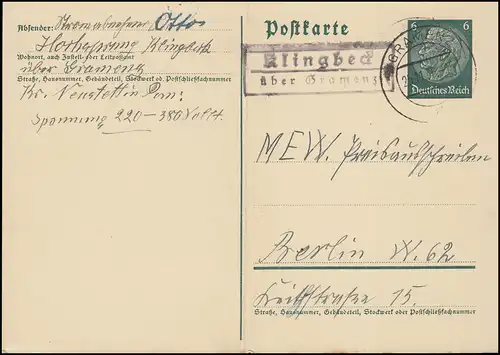 Absender: Stromabnehmer Otto
Klingbeck
Wohnort, auch Zustell- oder Leitpostamt
über Gramenz
Straße, Hausnummer, Gebäudeteil, Stockwerk od. Postschließfachnummer
Kr. Neustettin Pom.
Spannung 220-380 Volt.
Postkarte
6 6
Deutsches Reich
GRAMENZ
Klingbeck
über Gramenz
MEW. Preisausschreiben
Berlin W. 62
Keithstraße 15.
Straße, Hausnummer, Gebäudeteil, Stockwerk oder Postschließfachnummer